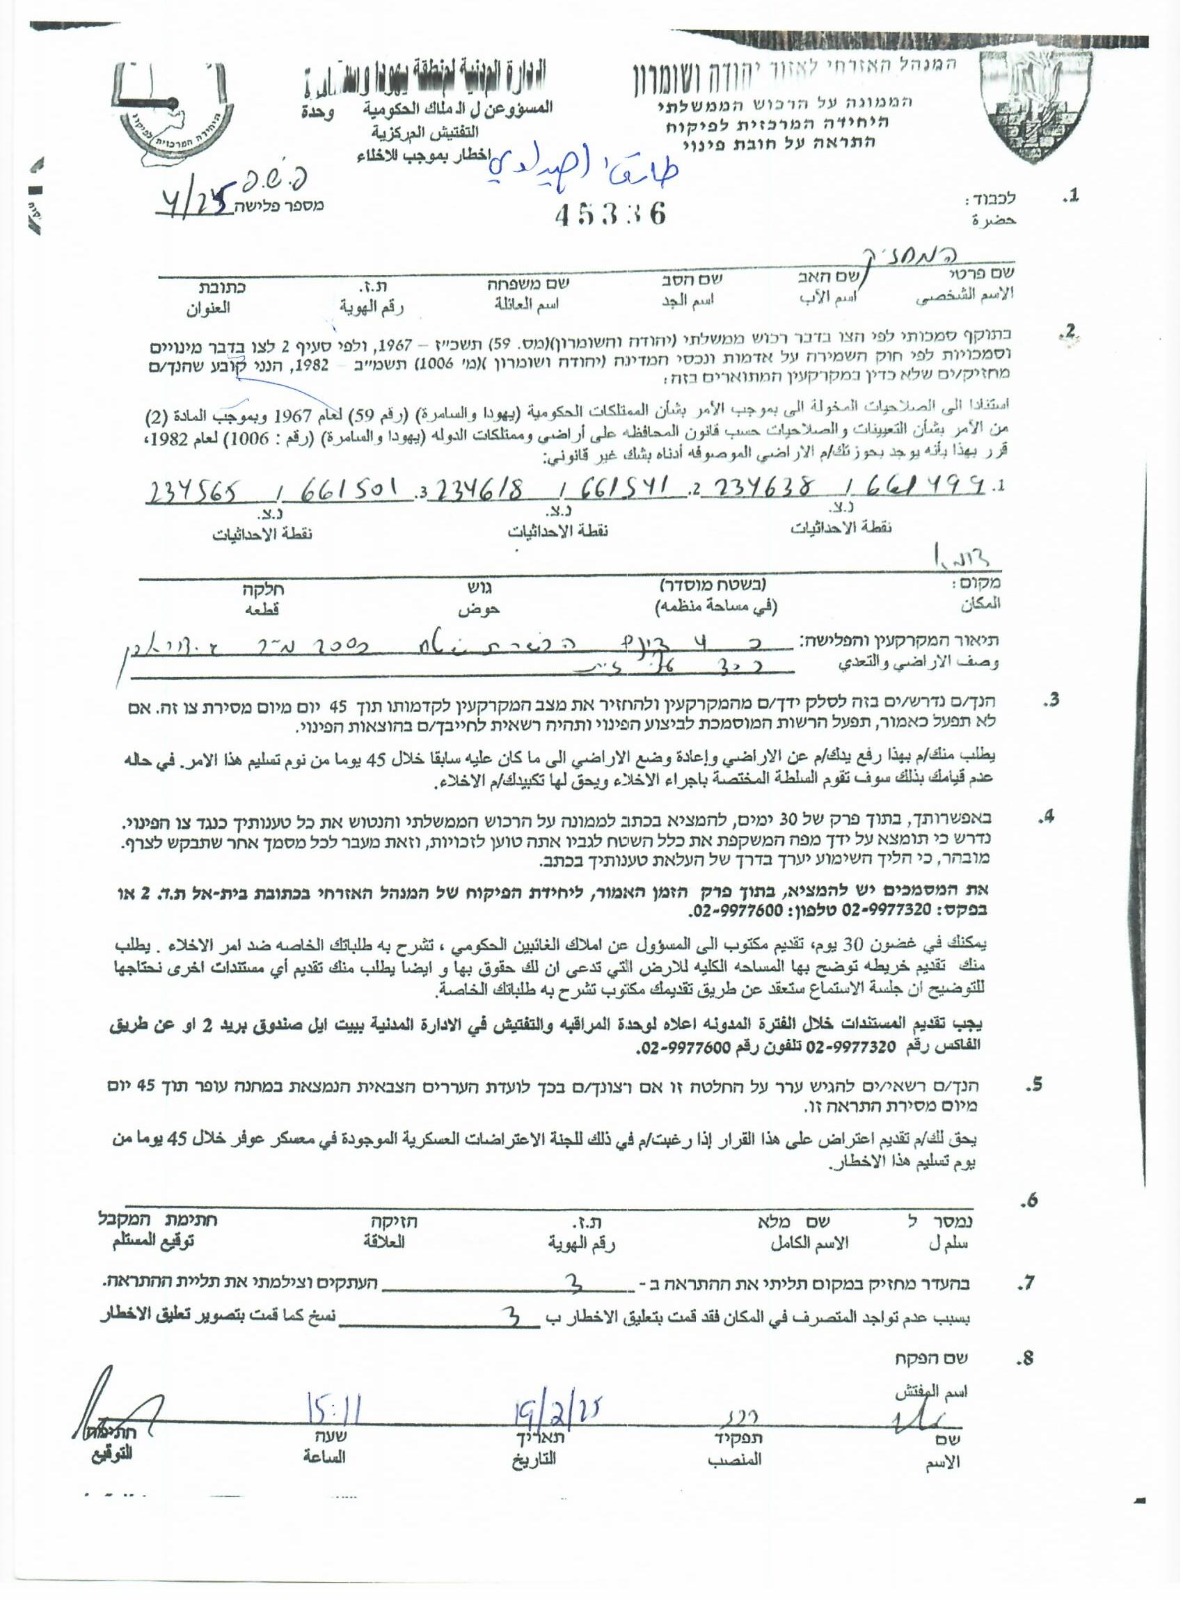 המנהל האזרחי לאזור יהודה ושומרון
הממונה על הרכוש הממשלתי
היחידה המרכזית לפיקוח
התראה על חובת פינוי
الادارة المدنية لمنطقة يهودا
المسؤوعن ل الاملاك الحكومية وحدة
التفتيش المركزية
اخطار بموجب للاخلاء
היחידה המרכזית לפיקוח
פ.ש.פ
מספר פלישה 4/25
45336
1. לכבוד:
حضرة
המחזיק
שם פרטי שם האב שם הסב שם משפחה ת.ז. כתובת
الاسم الشخصي اسم الأب اسم الجد اسم العائلة رقم الهوية العنوان
2. בתוקף סמכותי לפי הצו בדבר רכוש ממשלתי (יהודה והשומרון)(מס. 59) תשכ״ז – 1967, ולפי סעיף 2 לצו בדבר מינויים
וסמכויות לפי חוק השמירה על אדמות ונכסי המדינה (יהודה ושומרון )(מ׳ 1006) תשמ״ב – 1982, הנני קובע שהנך/ם
מחזיק/ים שלא כדין במקרקעין המתוארים בזה:
استنادا الى الصلاحيات المخولة الى بموجب الأمر بشأن الممتلكات الحكومية (يهودا والسامرة) (رقم 59) لعام 1967 وبموجب المادة (2)
من الأمر بشأن التعيينات والصلاحيات حسب قانون المحافظه على أراضي وممتلكات الدوله (يهودا والسامرة) (رقم : 1006) لعام 1982،
قرر بهذا بأنه يوجد بحوزتك/م الاراضي الموصوفه أدناه بشك غير قانوني:
1. 661499 / 234638 2. 661541 / 234618 3. 661501 / 234565
נ.צ. נ.צ. נ.צ.
نقطة الاحداثيات نقطة الاحداثيات نقطة الاحداثيات
דומא
מקום: (בשטח מוסדר) גוש חלקה
المكان (في مساحة منظمه) حوض قطعه
תיאור המקרקעין והפלישה: כ 4 דונם הכשרת שטח
وصف الاراضي والتعدي
3. הנך/ם נדרש/ים בזה לסלק ידך/ם מהמקרקעין ולהחזיר את מצב המקרקעין לקדמותו תוך 45 יום מיום מסירת צו זה. אם
לא תפעל כאמור, תפעל הרשות המוסמכת לביצוע הפינוי ותהיה רשאית לחייבך/ם בהוצאות הפינוי.
يطلب منك/م بهذا رفع يدك/م عن الاراضي وإعادة وضع الاراضي الى ما كان عليه سابقا خلال 45 يوما من نوم تسليم هذا الامر. في حاله
عدم قيامك بذلك سوف تقوم السلطة المختصة باجراء الاخلاء ويحق لها تكبيدك/م الاخلاء.
4. באפשרותך, בתוך פרק של 30 ימים, להמציא בכתב לממונה על הרכוש הממשלתי והנטוש את כל טענותיך כנגד צו הפינוי.
נדרש כי תומצא על ידך מפה המשקפת את כלל השטח לגביו אתה טוען לזכויות, וזאת מעבר לכל מסמך אחר שתבקש לצרף.
מובהר, כי הליך השימוע יערך בדרך של העלאת טענותיך בכתב.
את המסמכים יש להמציא, בתוך פרק הזמן האמור, ליחידת הפיקוח של המנהל האזרחי בכתובת בית-אל ת.ד. 2 או
בפקס: 02-9977320 טלפון: 02-9977600.
يمكنك في غضون 30 يوم، تقديم مكتوب الى المسؤول عن املاك الغائبين الحكومي ، تشرح به طلباتك الخاصه ضد امر الاخلاء . يطلب
منك تقديم خريطه توضح بها المساحه الكليه للارض التي تدعى ان لك حقوق بها و ايضا يطلب منك تقديم أي مستندات اخرى نحتاجها
للتوضيح ان جلسة الاستماع ستعقد عن طريق تقديمك مكتوب تشرح به طلباتك الخاصة.
يجب تقديم المستندات خلال الفترة المدونه اعلاه لوحدة المراقبه والتفتيش في الادارة المدنية ببيت ايل صندوق بريد 2 او عن طريق
الفاكس رقم 02-9977320 تلفون رقم 02-9977600.
5. הנך/ם רשאי/ים להגיש ערר על החלטה זו אם רצונך/ם בכך לועדת העררים הצבאית הנמצאת במחנה עופר תוך 45 יום
מיום מסירת התראה זו.
يحق لك/م تقديم اعتراض على هذا القرار إذا رغبت/م في ذلك للجنة الاعتراضات العسكرية الموجودة في معسكر عوفر خلال 45 يوما من
يوم تسليم هذا الاخطار.
6.
נמסר ל שם מלא ת.ז. הזיקה חתימת המקבל
سلم ل الاسم الكامل رقم الهوية العلاقة توقيع المستلم
7. בהעדר מחזיק במקום תליתי את ההתראה ב- 3 העתקים וצילמתי את תליית ההתראה.
بسبب عدم تواجد المتصرف في المكان فقد قمت بتعليق الاخطار ب 3 نسخ كما قمت بتصوير تعليق الاخطار
8. שם הפקח
اسم المفتش
19/2/25 15:11
שם תפקיד תאריך שעה חתימה
الاسم المنصب التاريخ الساعة التوقيع